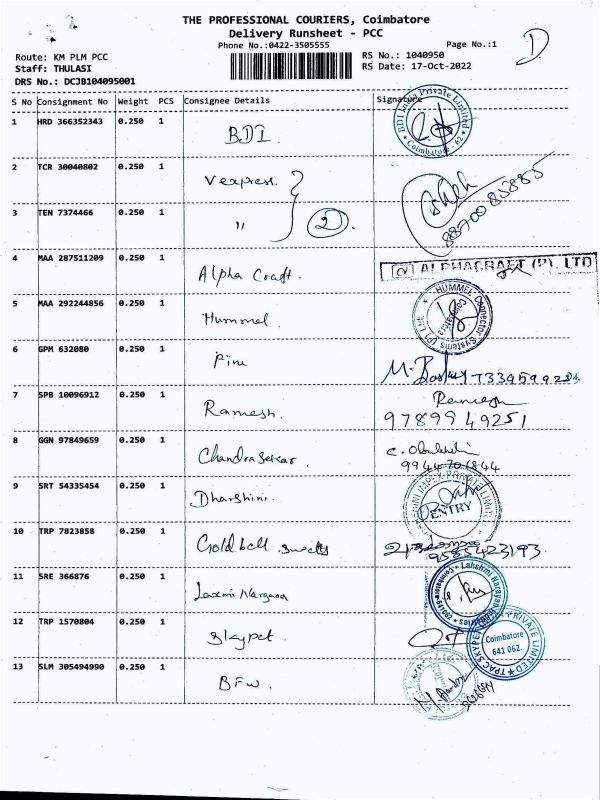 THE PROFESSIONAL COURIERS, Coimbatore
Delivery Runsheet - PCC
Phone No.:0422-3505555
Page No.:1
D
Route: KM PLM PCC
Staff: THULASI
DRS No.: DCJB104095001
RS No.: 1040950
RS Date: 17-Oct-2022
S No Consignment No Weight PCS Consignee Details Signature
1 HRD 366352343 0.250 1 BDI. BDI India Private Limited Coimbatore
2 TCR 30040802 0.250 1 Vexpress. 8870085885
3 TEN 7374466 0.250 1 " 2
4 MAA 287511209 0.250 1 Alpha Craft. ALPHACRAFT (P). LTD
5 MAA 292244856 0.250 1 Hummel HUMMEL Connector Systems (P) Ltd Coimbatore
6 GPM 632080 0.250 1 M.
7 SPB 10096912 0.250 1 Ramesh. Ramesh
9789949251
8 GGN 97849659 0.250 1 Chandrasekar. C.
9944701844
9 SRT 54335454 0.250 1 Dharshini. IMPEX PRIVATE LIMITED ENTRY
10 TRP 7823858 0.250 1 Goldbell sweets
9585423193
11 SRE 366876 0.250 1 Laxmi Narayana Lakshmi Coimbatore
12 TRP 1570804 0.250 1 PRIVATE LIMITED Coimbatore 641 062.
13 SLM 305494990 0.250 1 BFW.